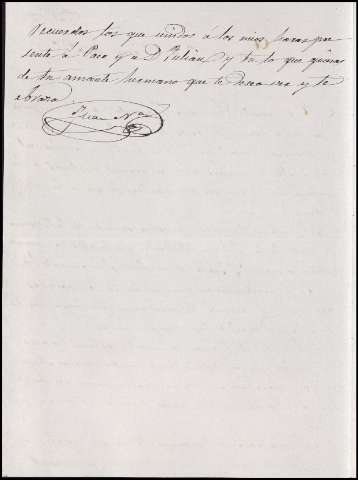 recuerdos los que unidos á los mios haras pre
sente á Paco y a Dn Julian y tu lo que quieras
de tu amante hermano que te desea ver y te
abraza
Juan Na